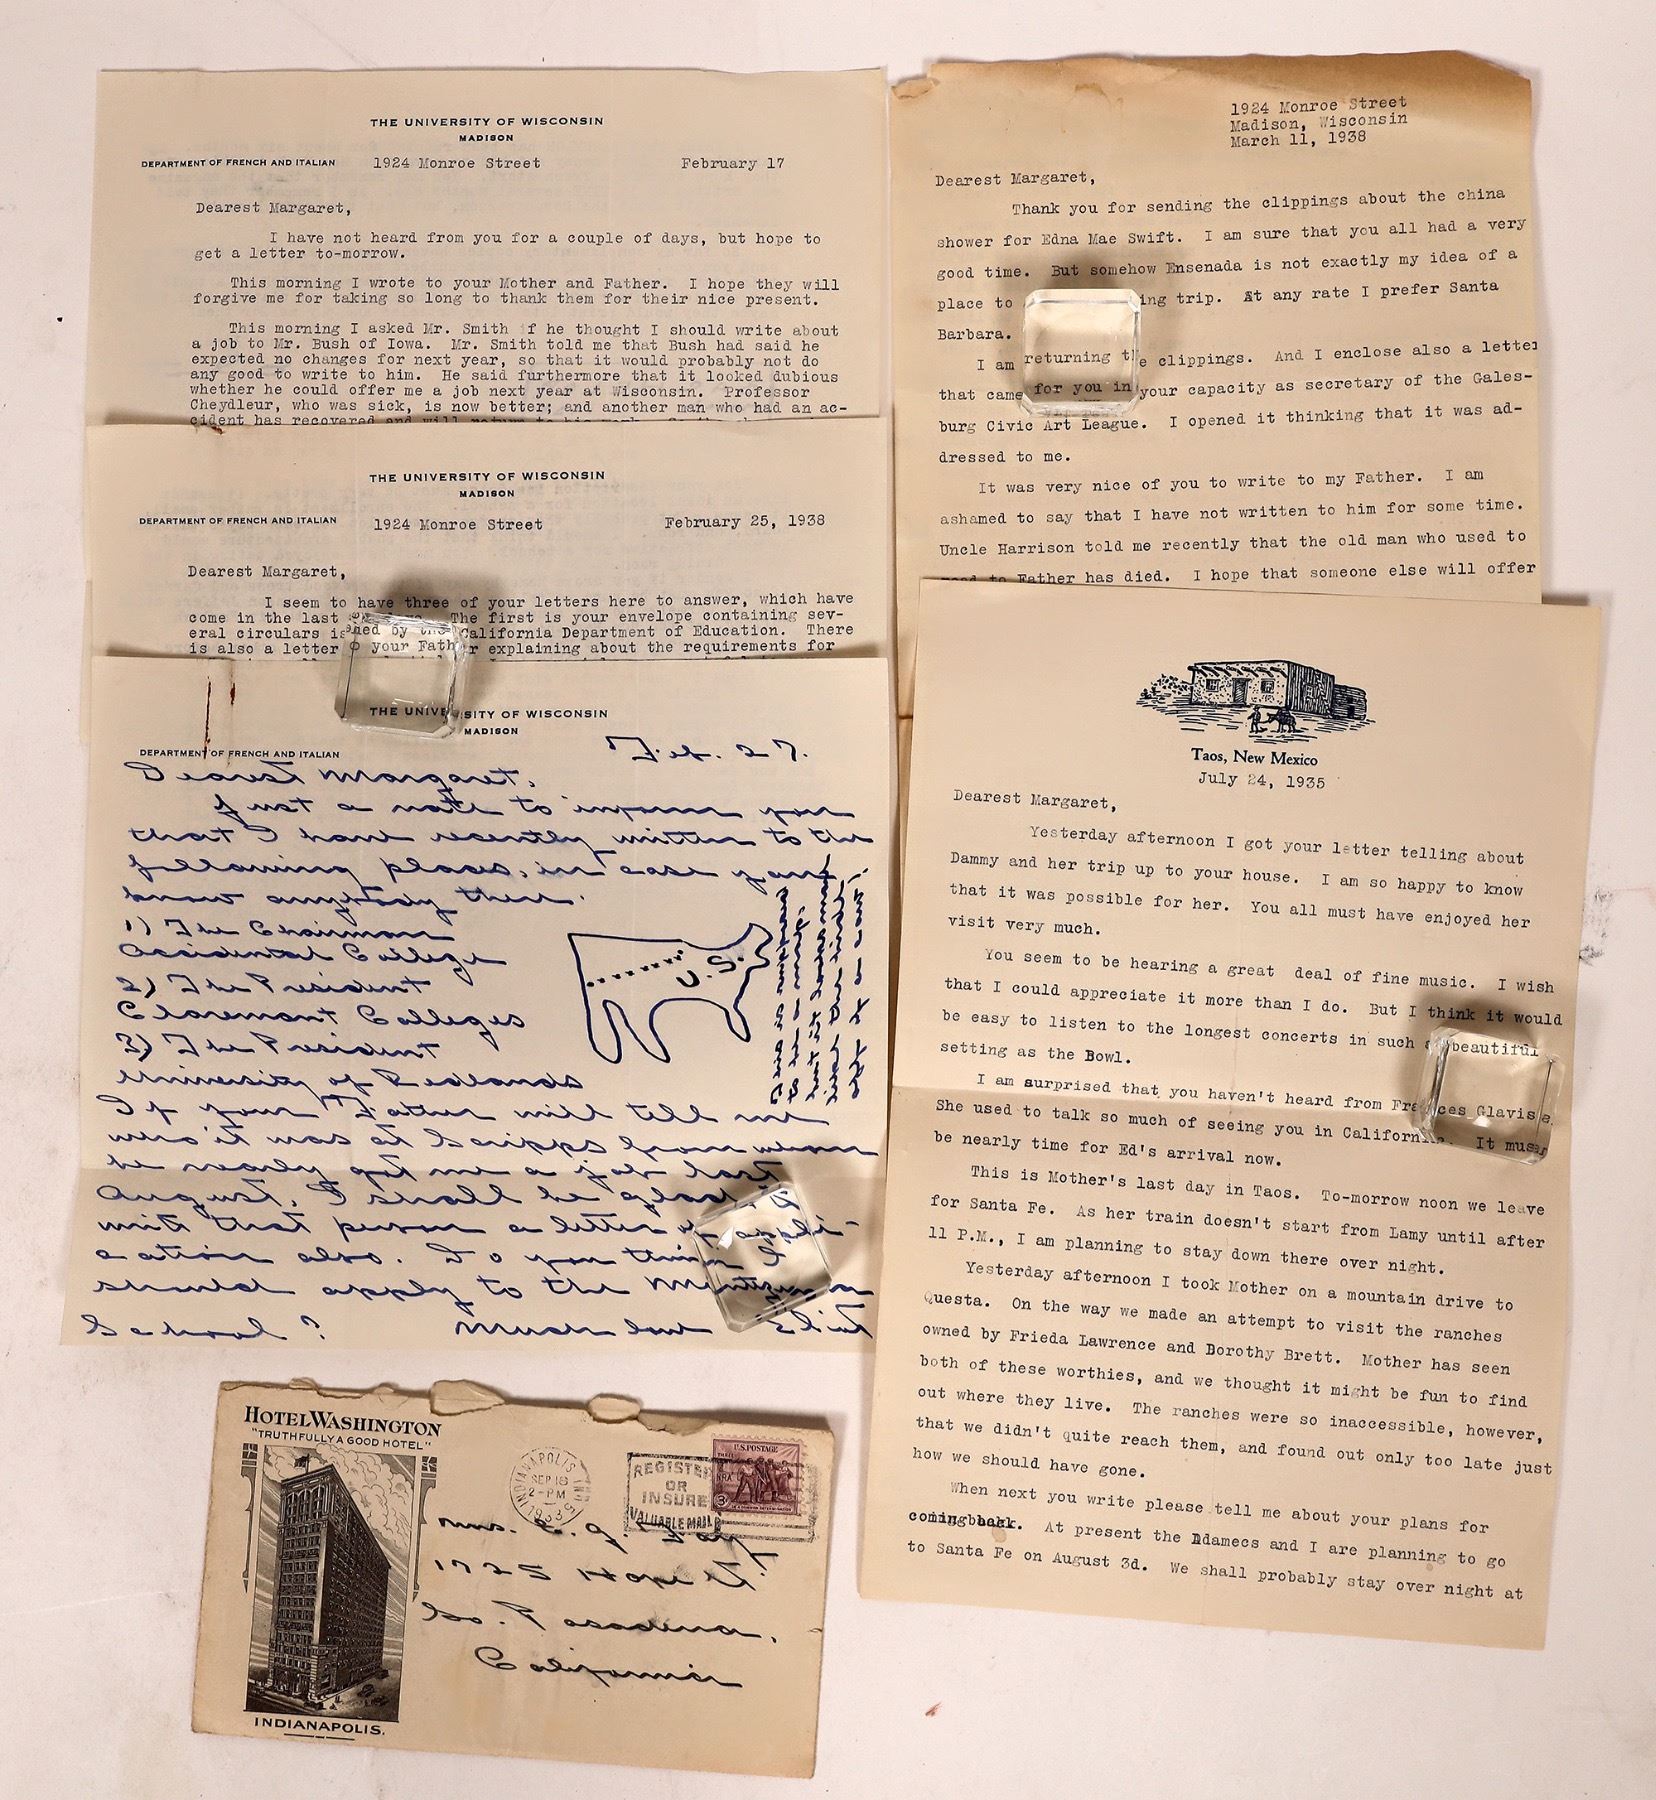 THE UNIVERSITY OF WISCONSIN
MADISON
DEPARTMENT OF FRENCH AND ITALIAN 1924 Monroe Street February 17
Dearest Margaret,
I have not heard from you for a couple of days, but hope to
get a letter to-morrow.
This morning I wrote to your Mother and Father. I hope they will
forgive me for taking so long to thank them for their nice present.
This morning I asked Mr. Smith if he thought I should write about
a job to Mr. Bush of Iowa. Mr. Smith told me that Bush had said he
expected no changes for next year, so that it would probably not do
any good to write to him. He said furthermore that it looked dubious
whether he could offer me a job next year at Wisconsin. Professor
Cheydleur, who was sick, is now better; and another man who had an ac-
cident has recovered and will return to his work.
THE UNIVERSITY OF WISCONSIN
MADISON
DEPARTMENT OF FRENCH AND ITALIAN 1924 Monroe Street February 25, 1938
Dearest Margaret,
I seem to have three of your letters here to answer, which have
come in the last The first is your envelope containing sev-
eral circulars by the California Department of Education. There
is also a letter to your Father explaining about the requirements for
THE UNIVERSITY OF WISCONSIN
MADISON
DEPARTMENT OF FRENCH AND ITALIAN Feb. 27.
Dearest Margaret,
Just a note to inform you
that I have recently written to the
following places, in case you
know anybody there.
1) The Chairman
Occidental College
2) The President
Claremont Colleges
3) The President
University of Redlands
U.S.
If your Father will tell me
who it was at Scripps from whom
he nearly got me a job last
August, I shall be glad to
write that person a letter of appli-
cation also. Do you think I
should apply to the Montezuma
School? Much love Eliot
1924 Monroe Street
Madison, Wisconsin
March 11, 1938
Dearest Margaret,
Thank you for sending the clippings about the china
shower for Edna Mae Swift. I am sure that you all had a very
good time. But somehow Ensenada is not exactly my idea of a
place to ing trip. At any rate I prefer Santa
Barbara.
I am returning the clippings. And I enclose also a letter
that came for you in your capacity as secretary of the Gales-
burg Civic Art League. I opened it thinking that it was ad-
dressed to me.
It was very nice of you to write to my Father. I am
ashamed to say that I have not written to him for some time.
Uncle Harrison told me recently that the old man who used to
read to Father has died. I hope that someone else will offer
Taos, New Mexico
July 24, 1935
Dearest Margaret,
Yesterday afternoon I got your letter telling about
Dammy and her trip up to your house. I am so happy to know
that it was possible for her. You all must have enjoyed her
visit very much.
You seem to be hearing a great deal of fine music. I wish
that I could appreciate it more than I do. But I think it would
be easy to listen to the longest concerts in such a beautiful
setting as the Bowl.
I am surprised that you haven't heard from Frances Glavis
She used to talk so much of seeing you in California. It must
be nearly time for Ed's arrival now.
This is Mother's last day in Taos. To-morrow noon we leave
for Santa Fe. As her train doesn't start from Lamy until after
11 P.M., I am planning to stay down there over night.
Yesterday afternoon I took Mother on a mountain drive to
Questa. On the way we made an attempt to visit the ranches
owned by Frieda Lawrence and Dorothy Brett. Mother has seen
both of these worthies, and we thought it might be fun to find
out where they live. The ranches were so inaccessible, however,
that we didn't quite reach them, and found out only too late just
how we should have gone.
When next you write please tell me about your plans for
coming back. At present the Adamecs and I are planning to go
to Santa Fe on August 3d. We shall probably stay over night at
HOTEL WASHINGTON
"TRUTHFULLY A GOOD HOTEL"
INDIANAPOLIS.
INDIANAPOLIS IND
SEP 18
2-PM
1933
REGISTER
OR
INSURE
VALUABLE MAIL
U.S. POSTAGE
NRA
3
Mrs. C. G. Fay
1725 Hope St.
So. Pasadena,
California